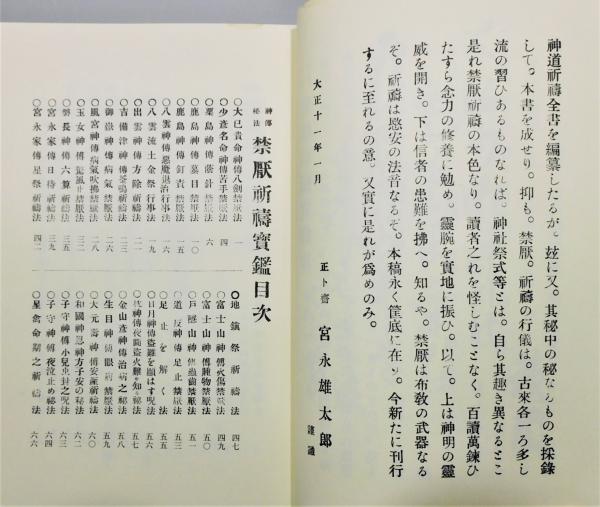 神道祈禱全書を編纂したるが。玆に又。其秘中の秘なるものを採錄
して。本書を成せり。抑も。禁厭。祈禱の行儀は。古來各一ろ多し
流の習ひあるものなれば。神社祭式等とは。自ら其趣き異なるとこ
是れ禁厭祈禱の本色なり。讀者之れを怪しむことなく。百讀萬鍊ひ
たすら念力の修養に勉め。靈腕を實地に振ひ。以て。上は神明の靈
威を開き。下は信者の患難を拂へ。知るや。禁厭は布敎の武器なる
ぞ。祈禱は慰安の法音なるぞ。本稿永く筐底に在り。今新たに刊行
するに至れるの意。又實に是れが爲めのみ。
大正十一年一月
正ト齋 宮永雄太郎 謹識
神傳秘法 禁厭祈禱寶鑑目次
○大已貴命神傳八劍禁厭法 一
○少彥名命神傳苦手禁厭法 四
○粟島神傳蔭針禁厭法 六
○鹿島神傳蟇目禁厭法 一〇
○鹿島神傳釘責禁厭法 一五
○八雲神傳惡魔退治行事 一六
○八雲流土金祭行事法 一九
○出雲神傳方除祈禱法 二一
○吉備津神傳釜鳴祈禱法 二三
○御嶽神傳病氣禁厭法 二六
○風宮神傳病氣吹拂禁厭法 二八
○玉女神傳驅風止禁厭法 三一
○磐長神傳六算祈禱法 三五
○宮永家傳日待祈禱法 三九
○宮永家傳星祭祈禱法 四二
○地鎭祭祈禱法 四七
○富士山神傳火傷禁厭法 四九
○富士山神傳腫物禁厭法 五〇
○戶隱山神傳蟲齒禁厭法 五一
○道反神傳足止禁厭法 五三
○足止を解く法 五五
○日月神傳盜難を顯はす呪法 五六
神傳夜間盜火難を知る秘 五七
○金山彥神傳治病之秘法 五八
○生目神傳眼病禁厭法 五九
○大元壽神傳安產祈禱法 六〇
○和國神忍神方子安の秘法 六二
○子守神傳小兒虫封之呪法 六三
○子守神傳夜泣止め秘法 六四
○星禽命期之祈禱法 六六